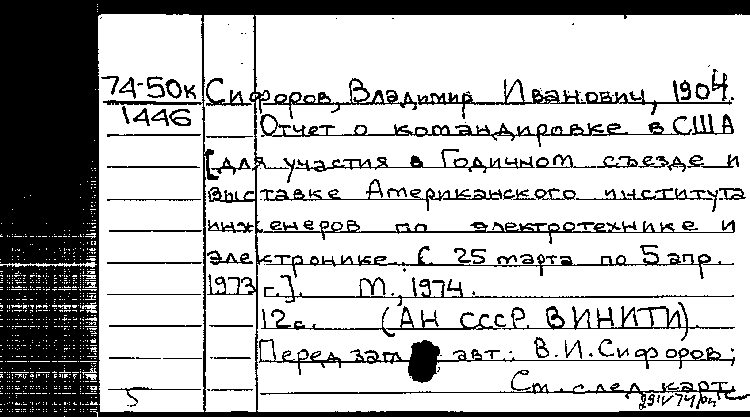 74-50к Сифоров, Владимир Иванович, 1904.
1446 Отчет о командировке в США
[для участия в Годичном съезде и
выставке Американского института
инженеров по электротехнике и
электронике. С 25 марта по 5 апр.
1973 г.]. М., 1974.
12с. (АН СССР. ВИНИТИ).
Перед загл авт.: В.И.Сифоров;
См. след. карт.
5